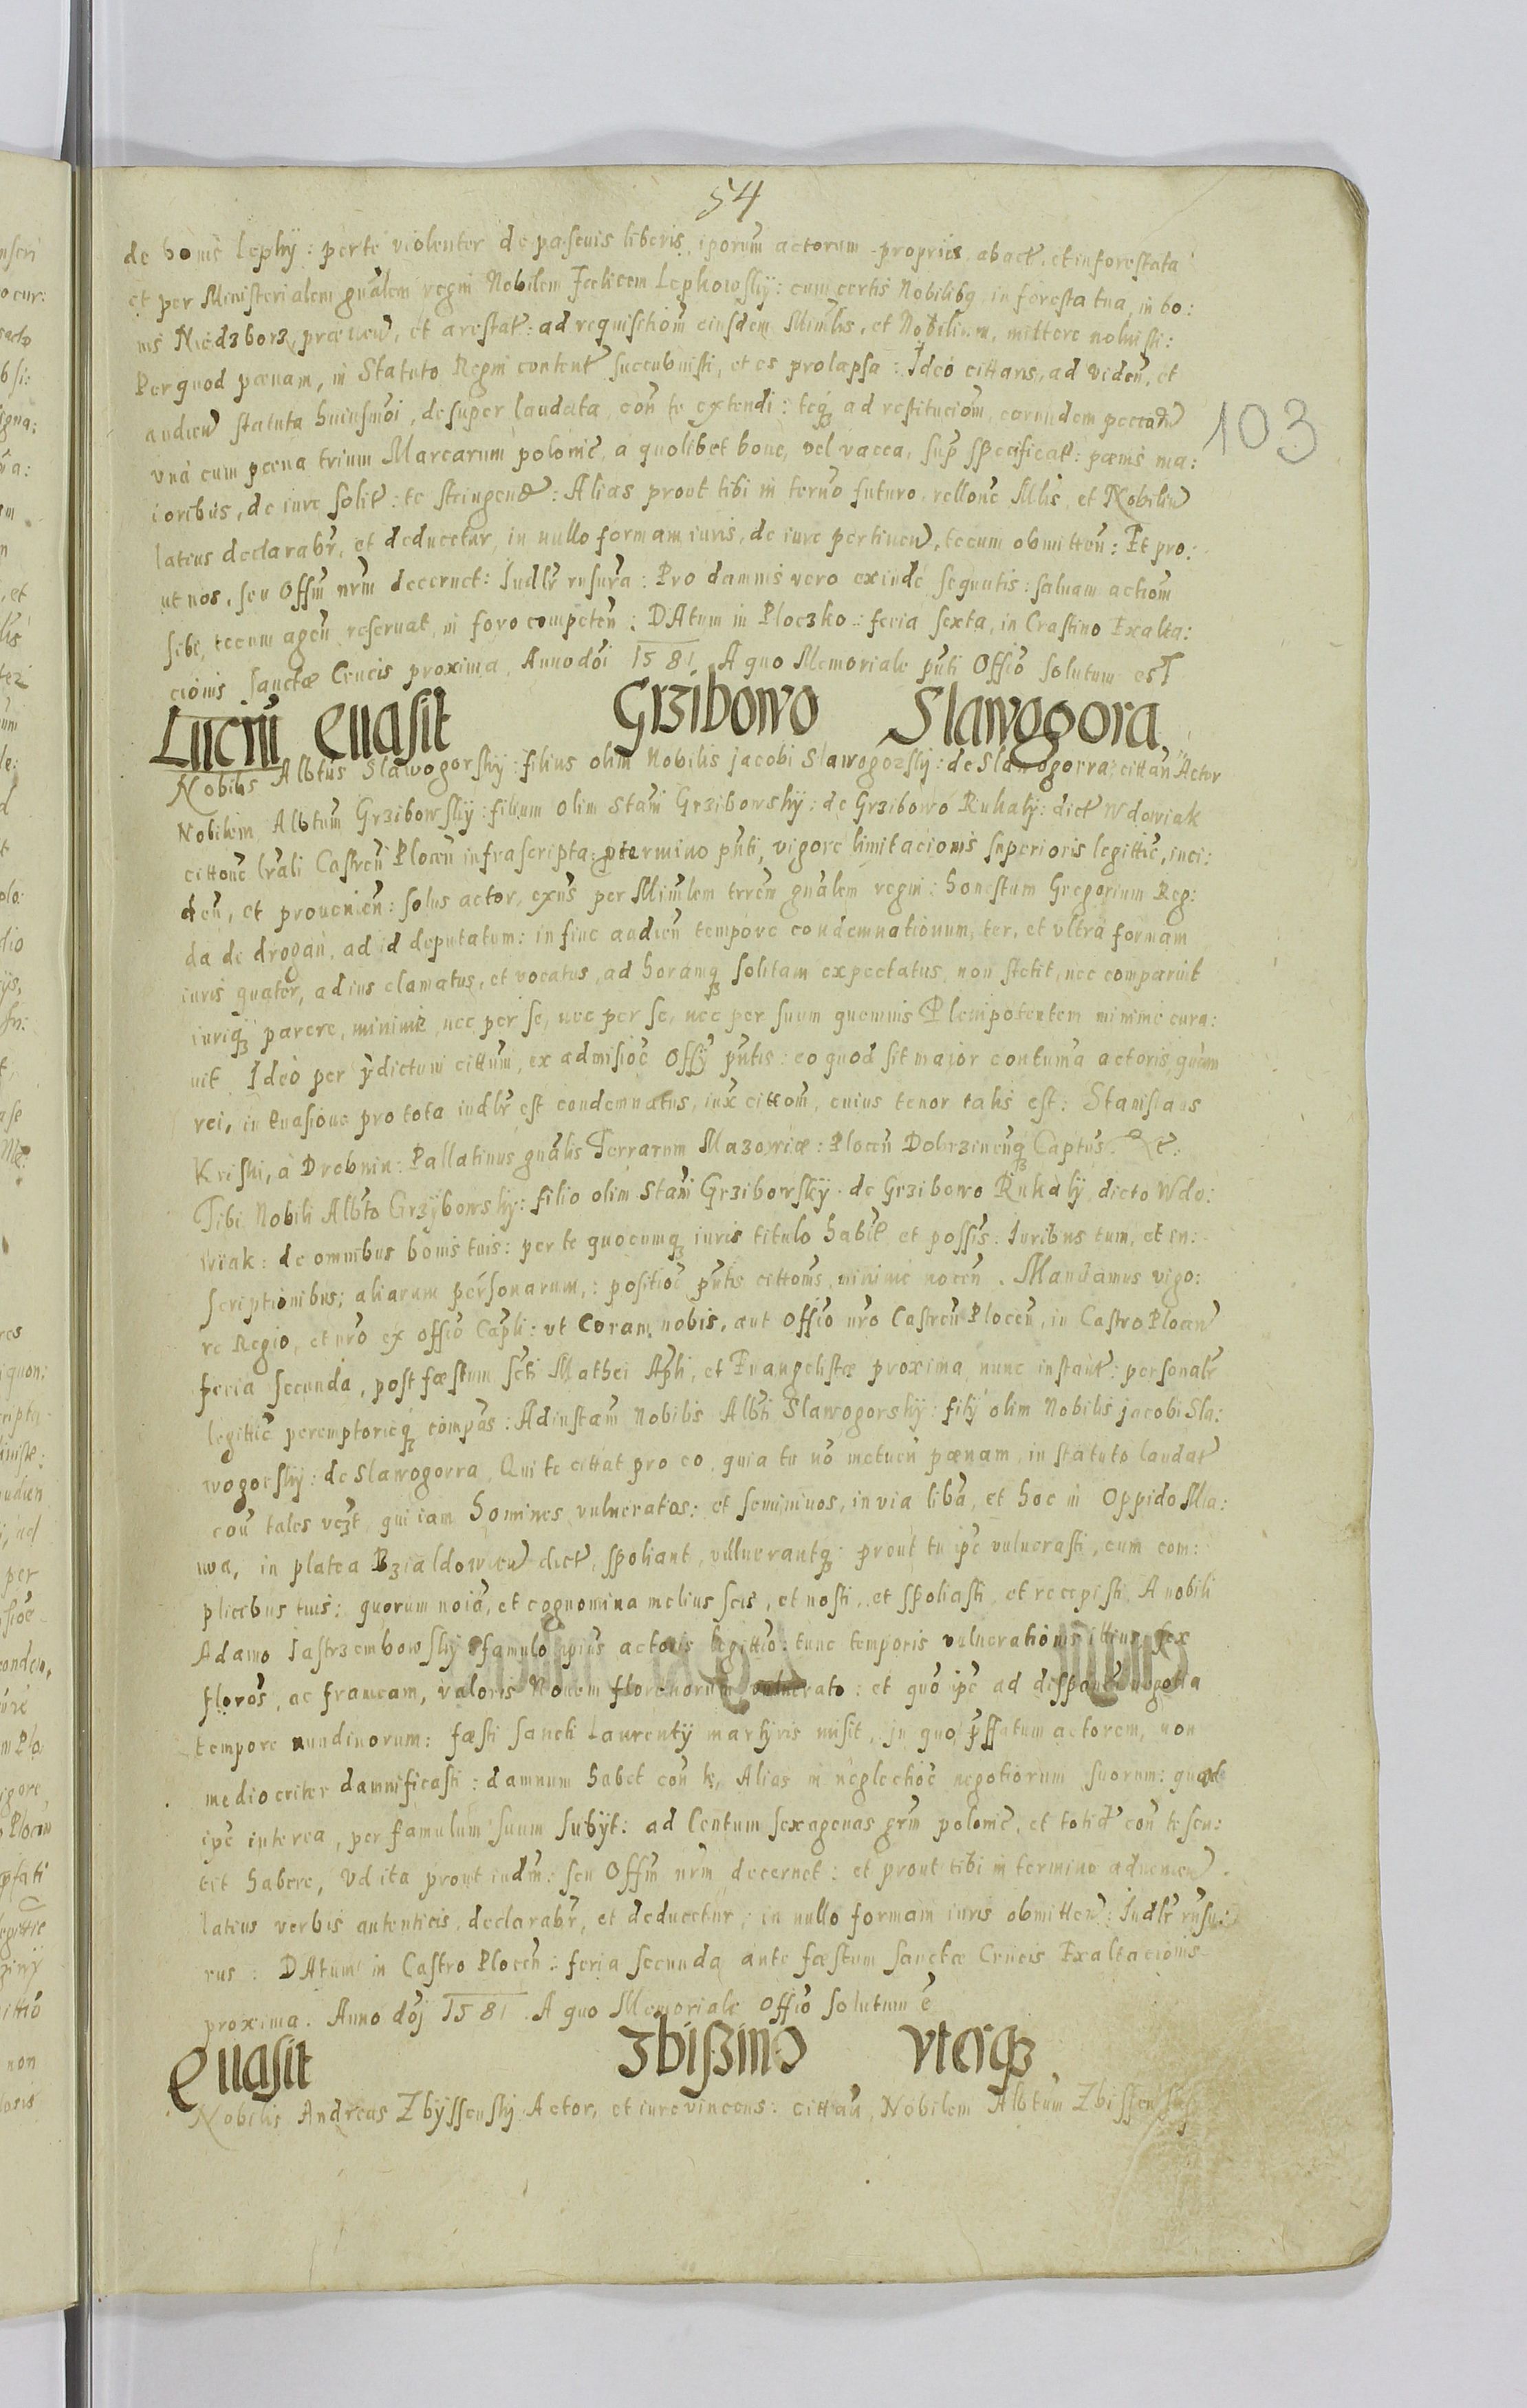 54
de bonis Lephy: per te violenter de pascuis liberis, iporum actorum propriis, abact, et inforestata
et per Ministerialem gnalem regni Nobilem Foelicem Lephowsky: cum certis Nobilibq in foresta tua, in bo:
nis Niedzborz, praeuen, et arestat: ad requisitiom eiusdem Minlis, et Nobilium, mittere noluisti:
Per quod poenam, in Statuto Regni content succubuisti, et es prolapsa: Ideo cittaris, ad viden, et
audien statuta huiusmoi, desuper laudata, con te extendi: teq ad restituciom, eorundem pecorum
103
vna cum poena trium Marcarum polonic, a quolibet boue, vel vacca, sup specificat: poenis ma:
ioribus, de iure solit: te stringend: Alias prout tibi in termo futuro, rellone Mlis, et Nobiliu
latius declarabr, et deducetur, in nullo formam iuris, de iure pertinen, tecum obmitten: Et pro:
ut nos, seu Offm nrm decernet: Iudlr rnsura: Pro damnis vero exinde sequutis: saluam actiom
sibi, tecum agen reseruat, in foro competen: DAtum in Ploczko: feria sexta, in Crastino Exalta:
cionis Sanctae Crucis proxima, Anno doi 1581 A quo Memoriale pnti Offio solutum est
Lucru Euasit Grzibowo Slawogora
Nobilis Albtus Slawogorsky: filius olim Nobilis jacobi Slawogorsky: de Slawogorra: cittan Actor
Nobilem Albtum Grzibowsky: filium olim Stani Grzibowsky: de Grzibowo Rukaly: dict Wdowiak
cittone lrali Castren Plocen infrascripta: ptermino pnti, vigore limitacionis superioris legittie, inci:
den, et prouenien: solus actor, exns per Minlem trrem gnalem regni: honestum Gregorium Reg:
da de drogan, ad id deputatum: in fine audien tempore condemnationum, ter, et vltra formam
iuris quater, ad ius clamatus, et vocatus, ad horamq solitam expectatus, non stetit, nec comparuit
iuriq parere, minime, nec per se, nec per se, nec per suum quemuis Plenipotentem minime cura:
uit Ideo per pdictum cittum, ex admisioe Offy pntis: eo quod sit maior contuma actoris quam
rei, in Euasione pro tota iudlr est condemnatus, iux cittom, cuius tenor talis est: Stanislaus
Kriski, a Drobnin: Pallatinus gnalis Terrarum Mazowiae: Plocen Dobrzinenq Captus. Etc:
Tibi Nobili Albto Grzybowsky: filio olim Stani Grzibowsky: de Grzibowo Rukaly, dicto Wdo:
wiak: de omnibus bonis tuis: per te quocumq iuris titulo habit et possis: Iuribus tum, et in:
scriptionibus; aliarum personarum,: positioe pntis cittonis, minime nocen. Mandamus vigo:
re Regio, et nro ex offio Capli: vt Coram nobis, aut Offio nro Castren Plocen, in Castro Plocen
feria secunda, post faestum scti Mathei Apli, et Euangelistae proxima, nunc instant: personalr
legittie peremptorieq compas: Ad instam Nobilis Albti Slawogorsky: fily olim Nobilis jacobi Sla:
wogorsky: de Slawogorra, Qui te cittat pro eo, quia tu no metuen poenam, in statuto laudat
con tales vezt, qui iam homines vulneratos: et seminiuos, in via liba, et hoc in Oppido Mla:
wa, in platea Bzialdowien dict, spoliant, vulnerantq: prout tu ipe vulnerasti, cum com:
plicibus tuis: quorum noia, et cognomina melius scis, et nosti, et spoliasti, et recepisti, A nobili
Adamo Iastrzembowsky famulo ipius actoris legittio: tunc temporis vulnerationis illius sex
floros, ac frameam, valoris Nouem florenorum vulnerato: et quo ipe ad disponen negotia
tempore nundinorum: faesti Sancti Laurenty martyris misit, in quo pffatum actorem, non
mediocriter damnificasti: damnum habet con te, Alias in neglectioe negotiorum suorum: quale
ipe interea, per famulum suum subyt: ad Centum sexagenas grm polonic, et totid con te sen:
tit habere, Vd ita prout iudm: seu Offm nrm decernet: et prout tibi in termino aduenien
latius verbis autenticis, declarabr, et deducetur, in nullo formam iuris obmitten: Iudlr rnsu:
rus: DAtum in Castro Plocen: feria secunda ante faestum sanctae Crucis Exaltacionis
proxima. Anno doj 1581. A quo Memoriale Offio solutum e
Euasit Zbißino vterq
Nobilis Andreas Zbyssensky Actor, et iure vincens: cittan, Nobilem Albtum Zbissensky